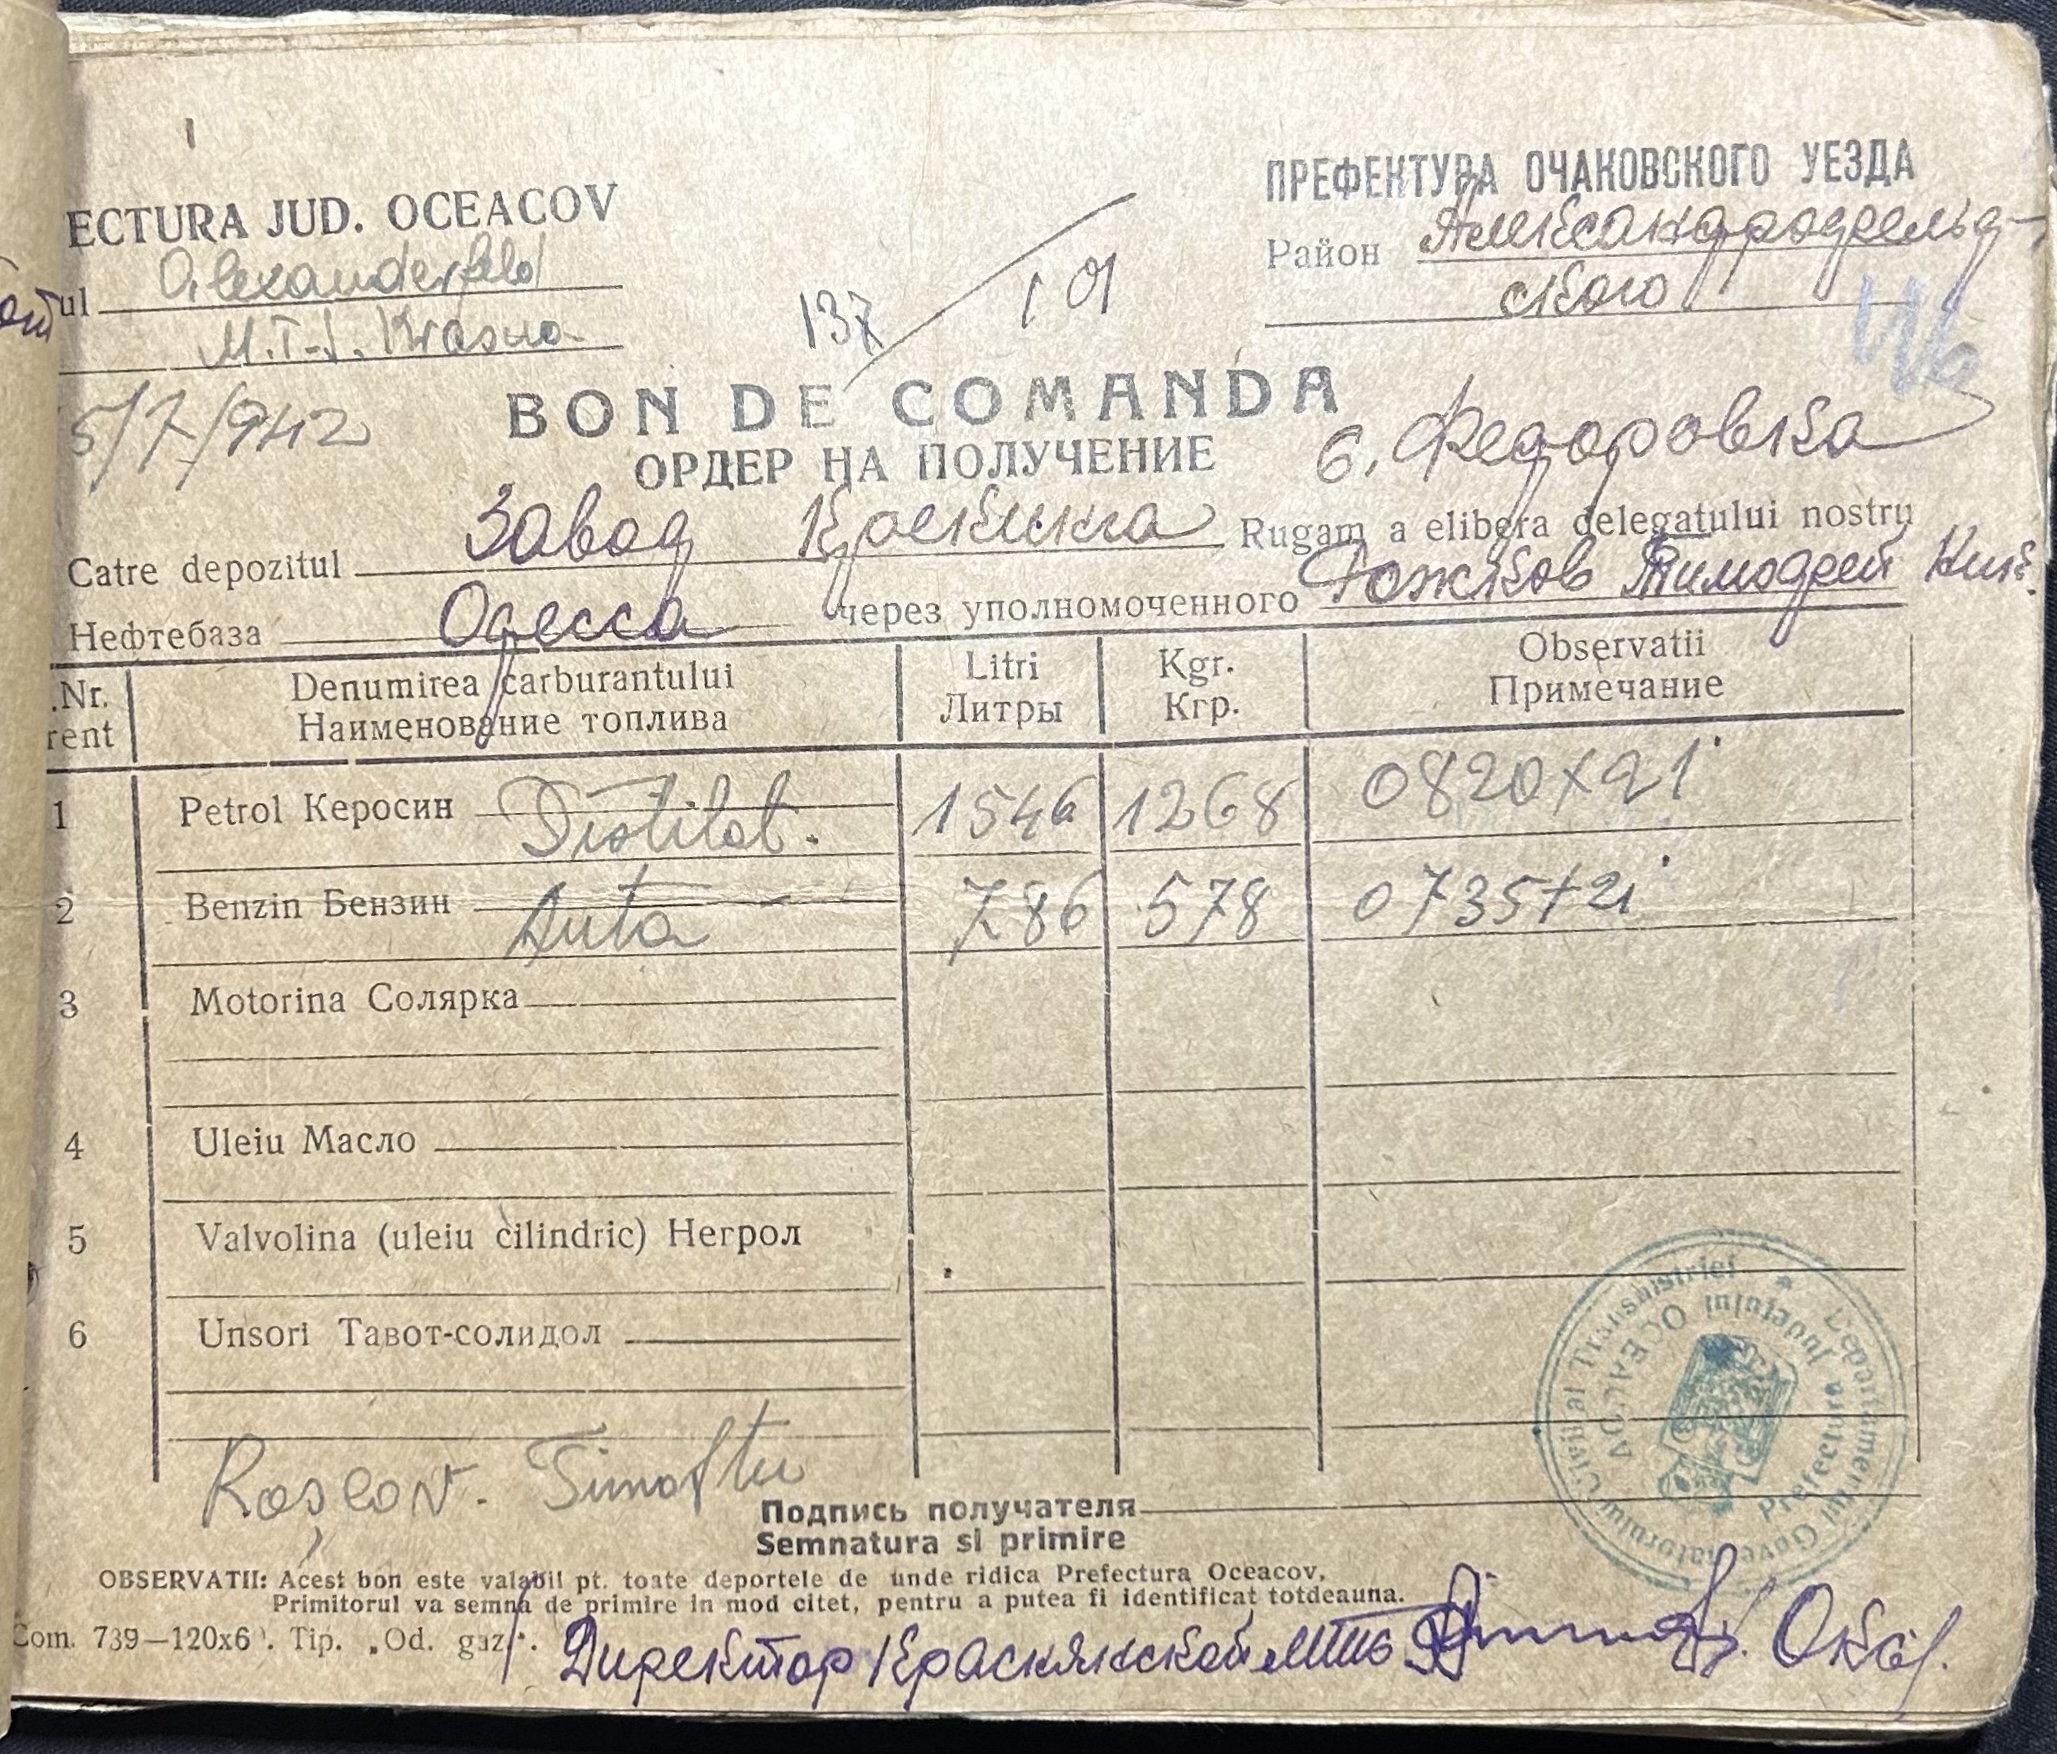 ECTURA JUD. OCEACOV
ПРЕФЕКТУРА ОЧАКОВСКОГО УЕЗДА
ul Alexanderfeld
Район Александрофельд-
ского
M.T.S. Krasna
137/101
116
5/7/942
BON DE COMANDA
ОРДЕР НА ПОЛУЧЕНИЕ
с. Федоровка
Catre depozitul Завод Крекинга Rugam a elibera delegatului nostru
Нефтебаза Одесса через уполномоченного Рожков Тимофей
.Nr. Denumirea carburantului Litri Kgr. Observatii
rent Наименование топлива Литры Кгр. Примечание
1 Petrol Керосин Distilat. 1546 1268 0820x21
2 Benzin Бензин Auto 786 578 0735+21
3 Motorina Солярка
4 Uleiu Масло
5 Valvolina (uleiu cilindric) Негрол
6 Unsori Тавот-солидол
Roșcov. Timoftei
Подпись получателя
Semnatura si primire
Guvernatorului Civil al Transnistriei * Departamentul
Prefectura Județului OCEACOV
OBSERVATII: Acest bon este valabil pt. toate deportele de unde ridica Prefectura Oceacov.
Primitorul va semna de primire in mod citet, pentru a putea fi identificat totdeauna.
Com. 739—120x6 . Tip. „Od. gaz.".
Директор Краснянской мтс